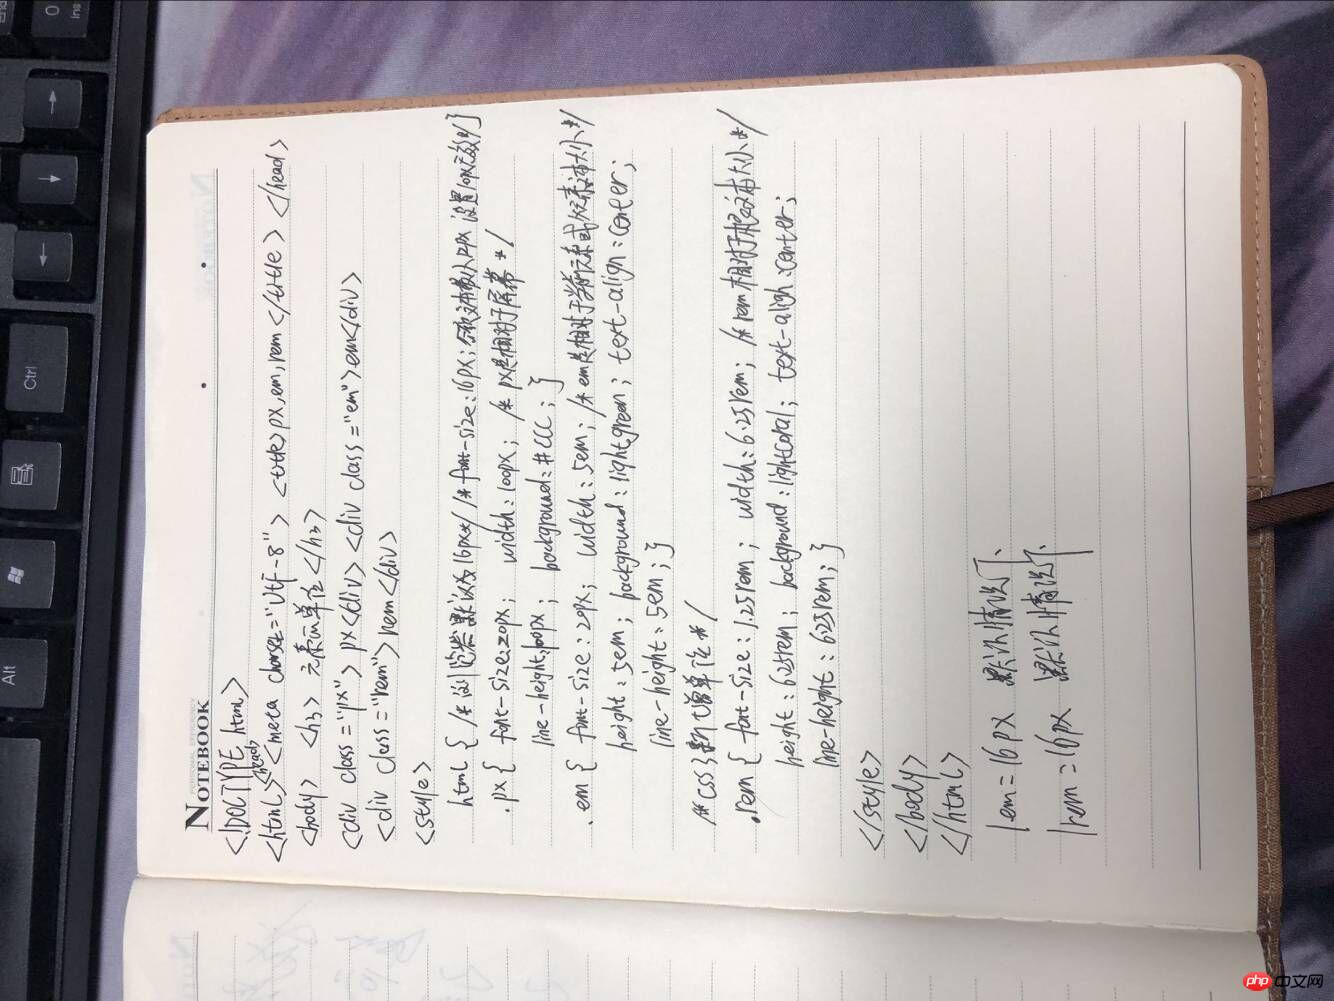 NOTEBOOK
<!DOCTYPE html>
<html> <head> <meta charset="Utf-8"> <title>px,em,rem</title> </head>
<body> <h3> 元素单位 </h3>
<div class="px"> px</div> <div class="em">em</div>
<div class="rem">rem</div>
<style>
html { /* 浏览器默认为16px*/ /* font-size:16px; 12px 设置10px }
.px { font-size:20px; width:100px; /* px是相对于屏幕 */
line-height:100px; background:#CCC; }
.em { font-size:20px; width:5em; /* em是相对于当前元素或父元素文本大小*/
height:5em; background:lightgreen; text-align:center;
line-height:5em; }
/* CSS3新增单位 */
.rem { font-size:1.25rem; width:6.25rem; /* rem相对于根文本大小*/
height:6.25rem; background:lightCoral; text-align:center;
line-height:6.25rem; }
</style>
</body>
</html>
1em=16px 默认情况下、
1rem=16px 默认情况下、
Ctrl
Alt
0
Ins
php中文网